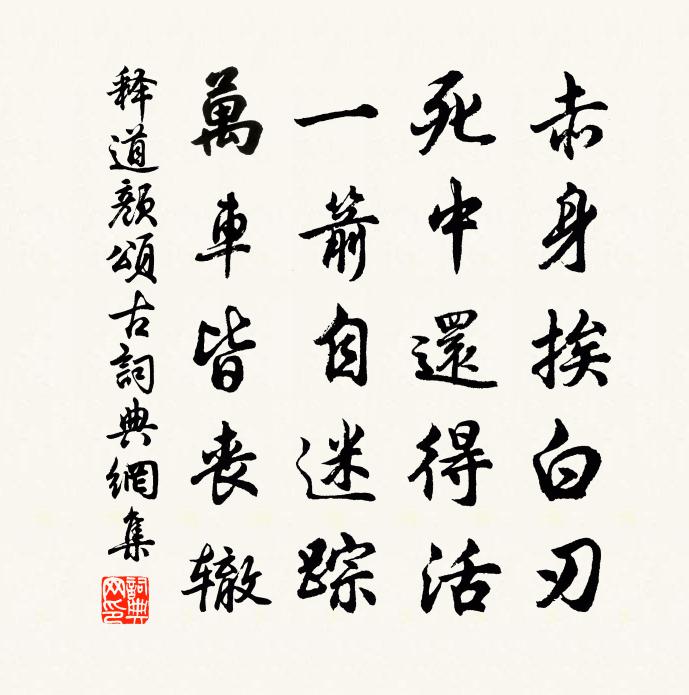 赤身挨白刃
死中還得活
一箭自迷踪
萬車皆丧辙
释道颜頌古詞典網集
詞典网印